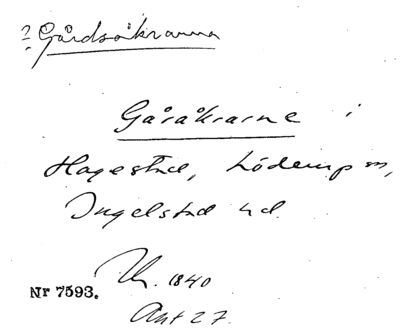 ? Gårdsåkrarna
Gåråkrarne i
Hagestad, Löderup sn,
Ingelstad hd.
1840
Nr 7593.
Akt 27